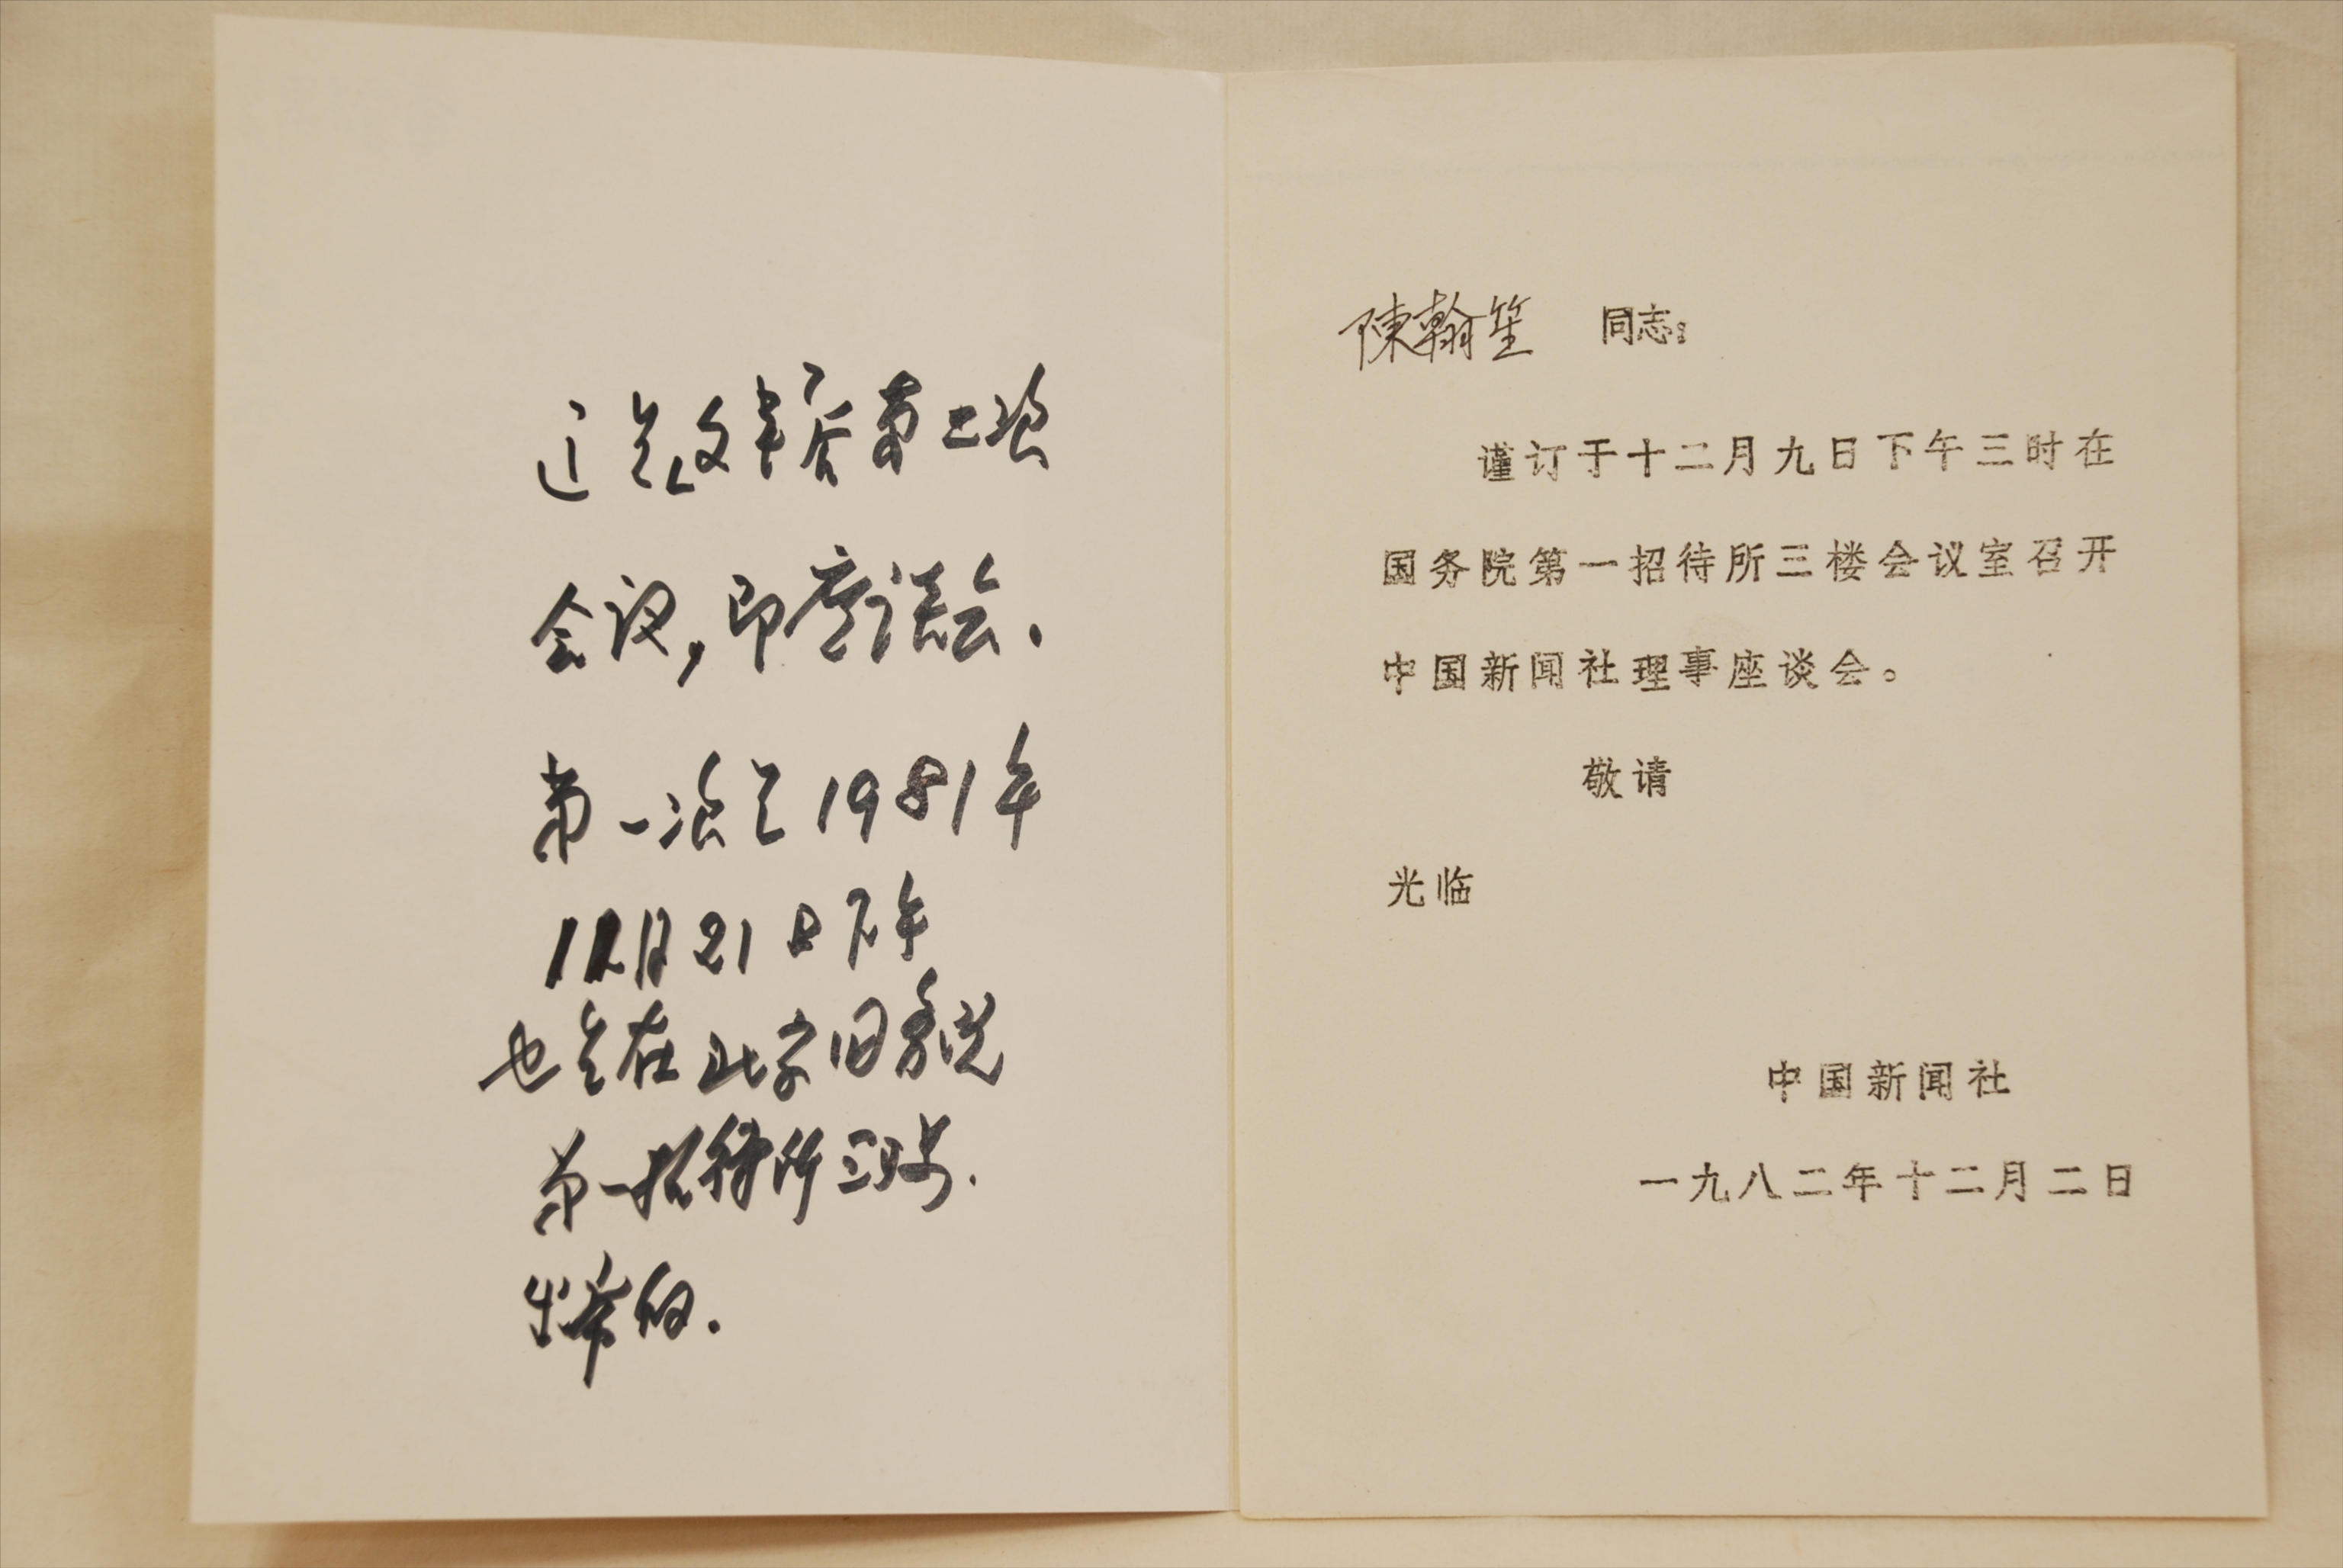 这是改半否第二次
会议，即座谈会.
第一次是1981年
12月21日下午
也是在北京国务院
第一招待所三时
出席的.
陳翰笙 同志：
谨订于十二月九日下午三时在
国务院第一招待所三楼会议室召开
中国新闻社理事座谈会。
敬请
光临
中国新闻社
一九八二年十二月二日